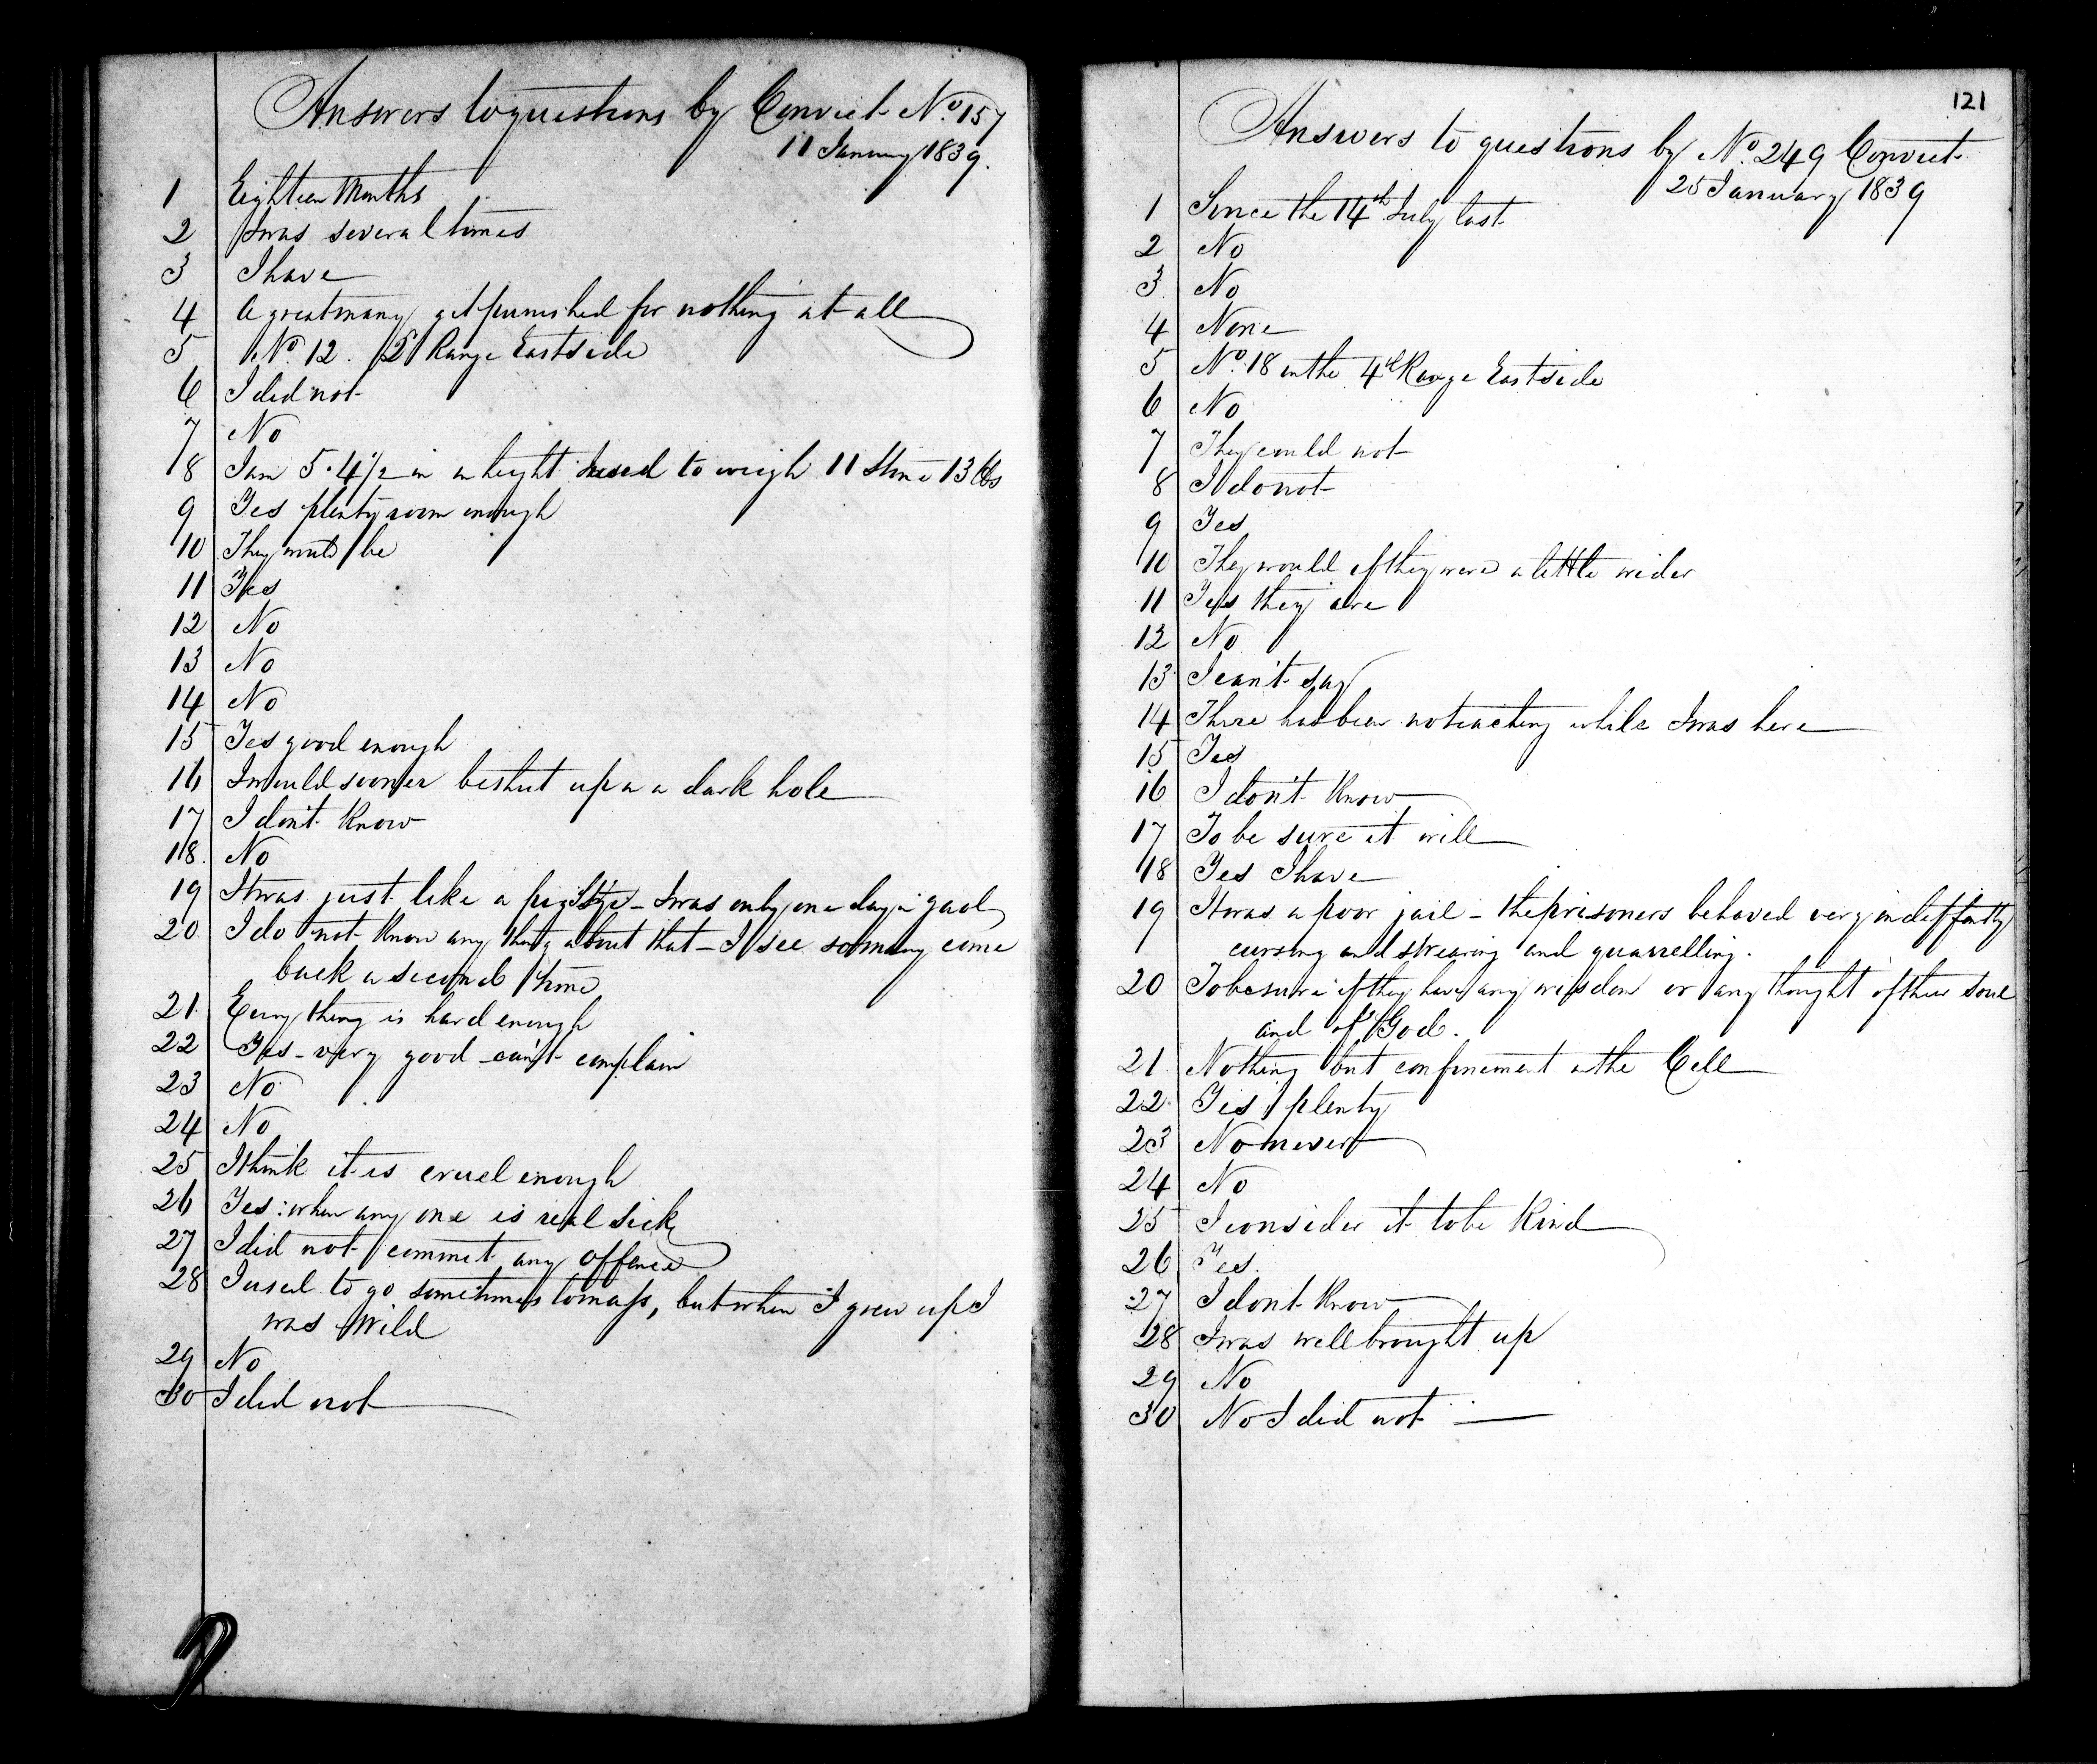 Answers to questions by Convict No 157
11 January 1839.
1 Eighteen Months
2 I was several times
3 I have
4 A great many get punished for nothing at all
5 No 12. 2d Range East side
6 I did not
7 No
8 I am 5.4½ in in height I used to weigh 11 Stone 13 lbs
9 Yes plenty room enough
10 They must be
11 Yes
12 No
13 No
14 No
15 Yes good enough
16 I would sooner be shut up in a dark hole
17 I don't know
18. No
19 It was just like a pig Stye - I was only one day in gaol
20 I do not know any thing about that - I see so many come
back a second time
21. Every thing is hard enough
22 Yes - very good - can't complain
23 No
24 No
25 I think it is cruel enough
26 Yes: when any one is real sick
27 I did not commit any offence
28 I used to go sometimes to mass, but when I grew up I
was Wild
29 No
30 I did not
121
Answers to questions by No. 249 Convict
25 January 1839
1 Since the 14th July last
2 No
3. No
4 None
5 No. 18 in the 4th Range East side
6 No
7 They could not
8 I do not
9 Yes
10 They would if they were a little wider
11 Yes they are
12 No
13 I can't say
14 There has been no teaching while I was here
15 Yes
16 I don't know
17 To be sure it will
18 Yes I have
19 It was a poor jail - the prisoners behaved very indiffently
cursing and swearing and quarrelling.
20 To be sure if they have any wisdom or any thought of their soul
and of God.
21. Nothing but confinement in the Cell
22. Yes plenty
23 No never
24 No
25 I consider it to be kind
26 Yes.
27 I don't know
28 I was well brought up
29 No
30 No I did not